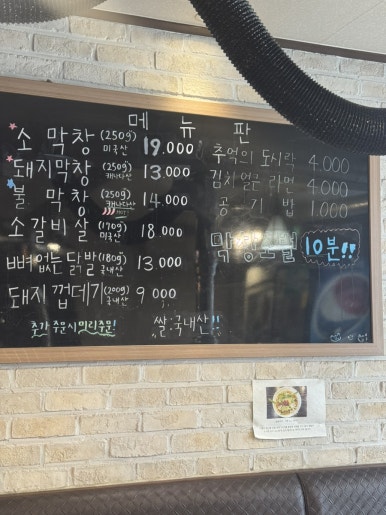 메뉴판
소 막창 (250g) 미국산 19.000
돼지막창 (250g) 캐나다산 13.000
불 막창 (250g) 캐나다산 14.000
소갈비살 (170g) 미국산 18.000
뼈없는 닭발 (180g) 국내산 13.000
돼지껍데기 (200g) 국내산 9 000
추가 주문시 미리주문!
쌀:국내산!!
추억의 도시락 4.000
김치 얼큰 라면 4.000
공기밥 1.000
막창초벌 10분!!